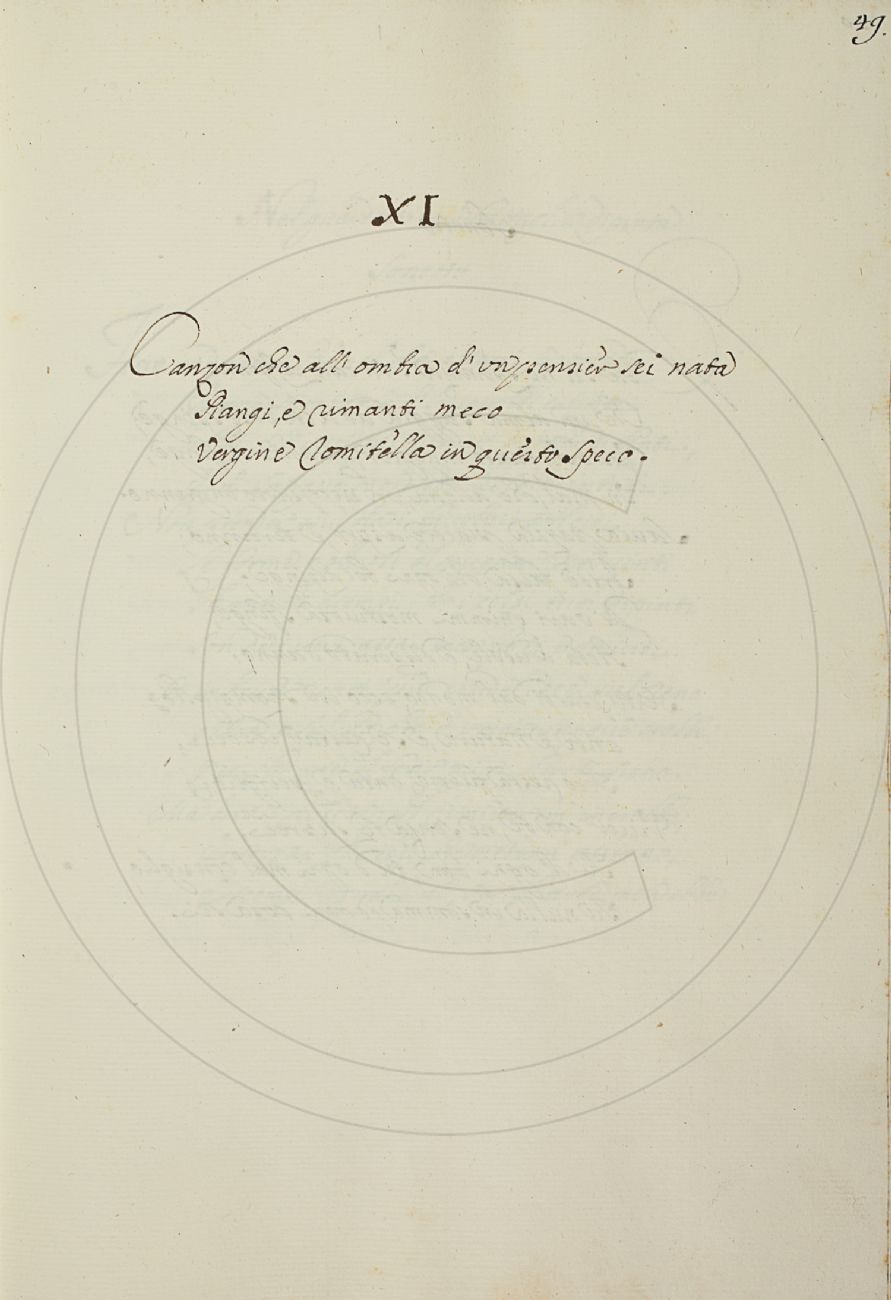 49.
XI
Canzon che all' ombra d' un pensier sei nata
Piangi, e rimanti meco
Vergine Romitella in questo Speco.